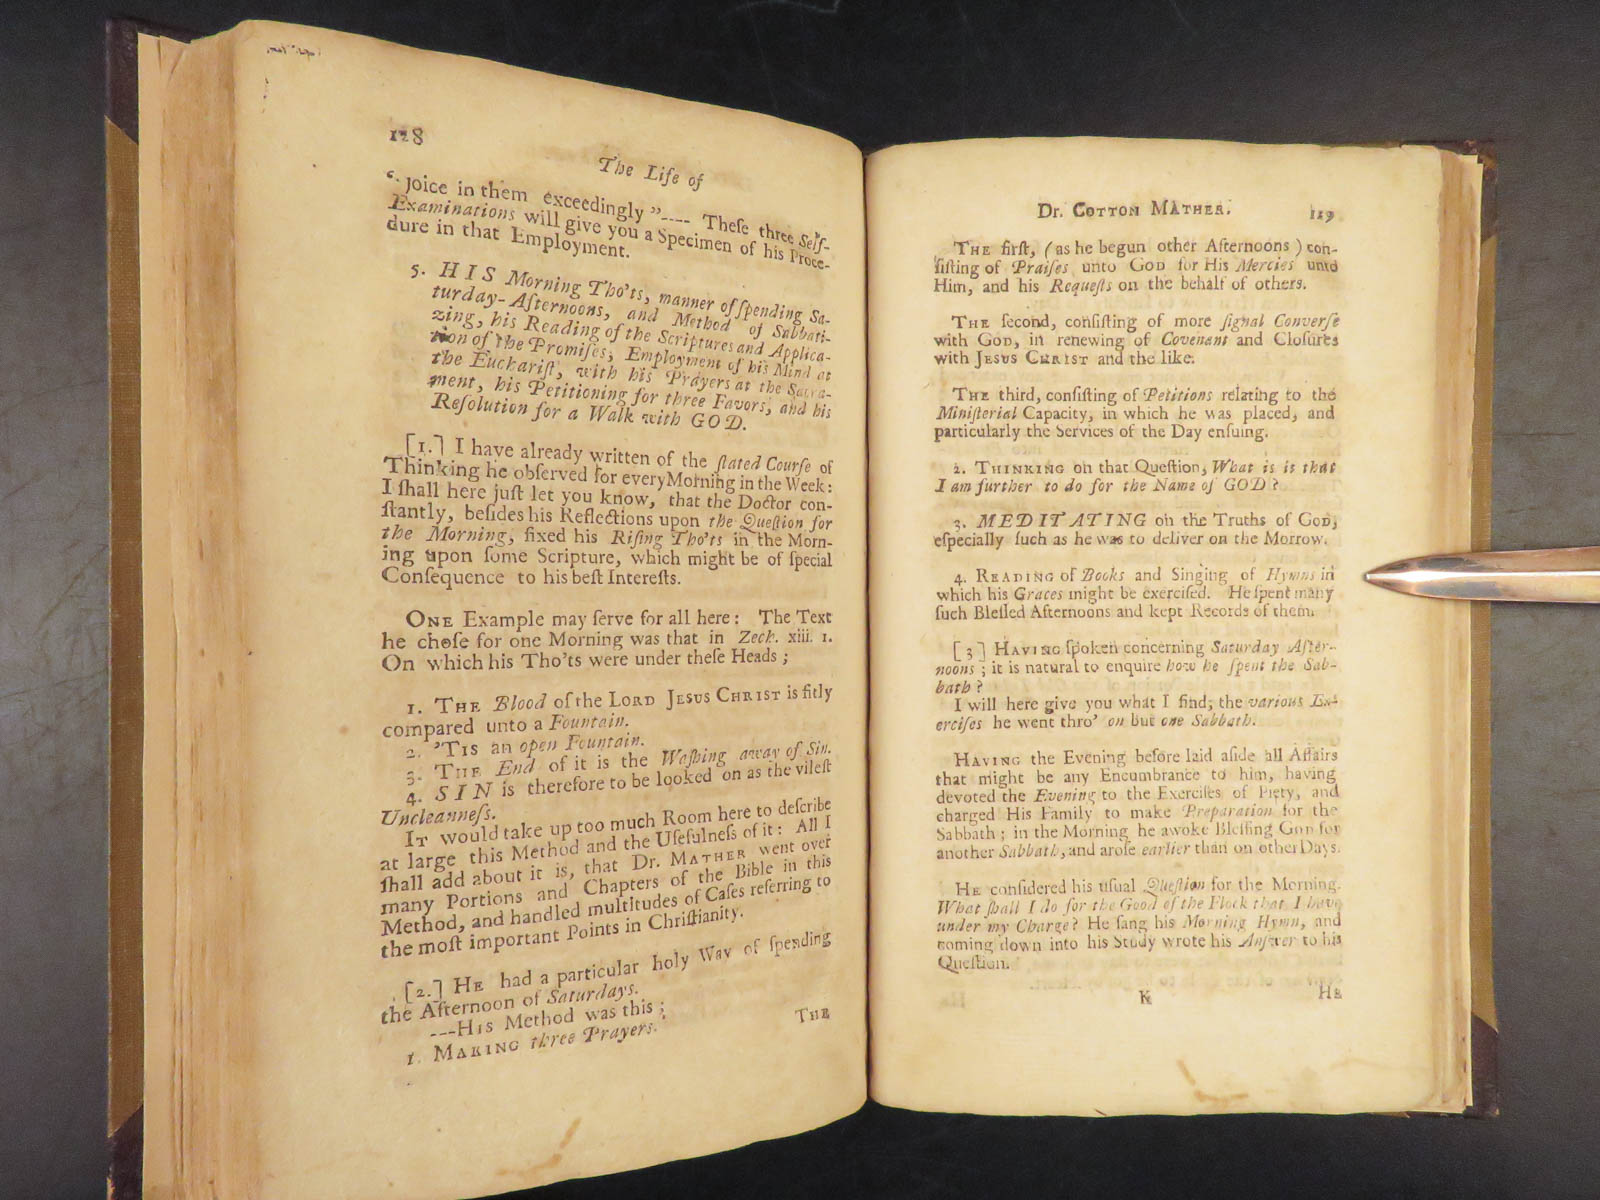 128
The Life of
“ joice in them exceedingly ”---- Theſe three Self-
Examinations will give you a Specimen of his Proce-
dure in that Employment.
5. HIS Morning Tho'ts, manner of ſpending Sa-
turday-Afternoons, and Method of Sabbati-
zing, his Reading of the Scriptures and Applica-
tion of the Promiſes, Employment of his Mind at
the Euchariſt, with his Prayers at the Sacra-
ment, his Petitioning for three Favors, and his
Reſolution for a Walk with GOD.
[1.] I have already written of the ſtated Courſe of
Thinking he obſerved for every Morning in the Week:
I ſhall here juſt let you know, that the Doctor con-
ſtantly, beſides his Reflections upon the Queſtion for
the Morning, fixed his Riſing Tho'ts in the Morn-
ing upon ſome Scripture, which might be of ſpecial
Conſequence to his beſt Intereſts.
ONE Example may ſerve for all here: The Text
he choſe for one Morning was that in Zech. xiii. 1.
On which his Tho'ts were under theſe Heads;
1. THE Blood of the LORD JESUS CHRIST is fitly
compared unto a Fountain.
2. 'TIS an open Fountain.
3. THE End of it is the Waſhing away of Sin.
4. SIN is therefore to be looked on as the vileſt
Uncleanneſs.
IT would take up too much Room here to deſcribe
at large this Method and the Uſefulneſs of it: All I
ſhall add about it is, that Dr. MATHER went over
many Portions and Chapters of the Bible in this
Method, and handled multitudes of Caſes referring to
the moſt important Points in Chriſtianity.
[2.] HE had a particular holy Way of ſpending
the Afternoon of Saturdays.
---HIS Method was this;
1. MAKING three Prayers.
THE
Dr. COTTON MATHER.
119
THE firſt, (as he begun other Afternoons) con-
ſiſting of Praiſes unto GOD for His Mercies unto
Him, and his Requeſts on the behalf of others.
THE ſecond, conſiſting of more ſignal Converſe
with GOD, in renewing of Covenant and Cloſures
with JESUS CHRIST and the like.
THE third, conſiſting of Petitions relating to the
Miniſterial Capacity, in which he was placed, and
particularly the Services of the Day enſuing.
2. THINKING on that Queſtion, What is it that
I am further to do for the Name of GOD?
3. MEDITATING on the Truths of GOD,
eſpecially ſuch as he was to deliver on the Morrow.
4. READING of Books and Singing of Hymns in
which his Graces might be exerciſed. He ſpent many
ſuch Bleſſed Afternoons and kept Records of them.
[3] HAVING ſpoken concerning Saturday After-
noons; it is natural to enquire how he ſpent the Sab-
bath?
I will here give you what I find; the various Ex-
erciſes he went thro' on but one Sabbath.
HAVING the Evening before laid aſide all Affairs
that might be any Encumbrance to him, having
devoted the Evening to the Exerciſes of Piety, and
charged His Family to make Preparation for the
Sabbath; in the Morning he awoke Bleſſing GOD for
another Sabbath, and aroſe earlier than on other Days.
HE conſidered his uſual Queſtion for the Morning.
What ſhall I do for the Good of the Flock that I have
under my Charge? He ſang his Morning Hymn, and
coming down into his Study wrote his Anſwer to his
Queſtion.
K
HE